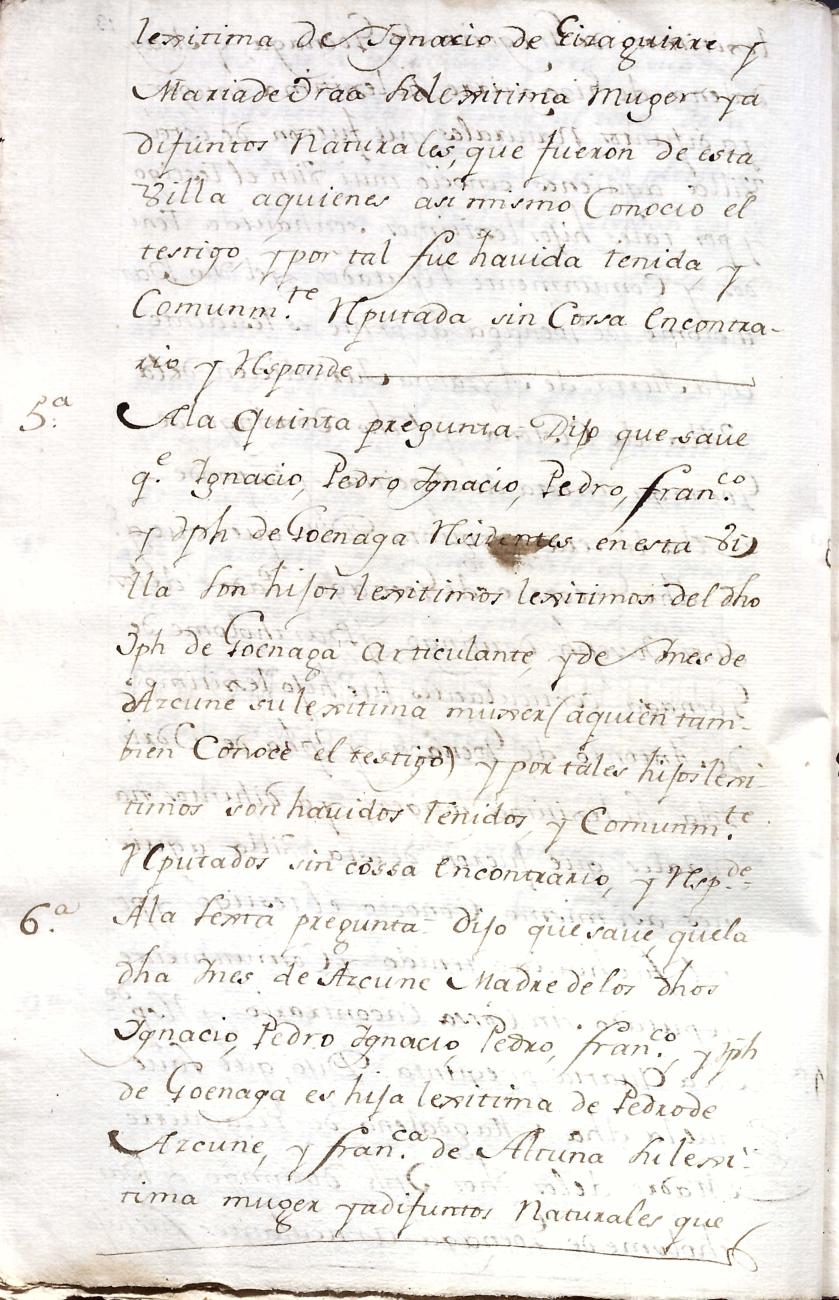 lexitima de Ignacio de Eizaguirre y
Maria de Oraa su lexitima Muger ya
difuntos Naturales, que fueron de esta
Villa aquienes asi mismo Conocio el
testigo y por tal fue havida tenida y
Comunm.te Reputada sin Cossa Encontra-
rio y Responde
5.a Ala Quinta pregunta Dijo que save
q.e Ignacio, Pedro Ignacio, Pedro, fran.co
y Jph de Goenaga Residentes en esta Vi
lla son hijos lexitimos lexitimos del dho
Jph de Goenaga Articulante, y de Ines de
Azcune su lexitima muxer (aquien tam-
bien Conoce el testigo) y por tales hijos lexi-
timos son havidos tenidos, y Comunm.te
Reputados sin cossa Encontrario, y Resp.de
6.a Ala sexta pregunta Dijo que save quela
dha Ines de Azcune Madre de los dhos
Ignacio, Pedro Ignacio, Pedro, fran.co, y Jph
de Goenaga es hija lexitima de Pedro de
Azcune, y fran.ca de Altuna su lexi-
tima muger ya difuntos Naturales que